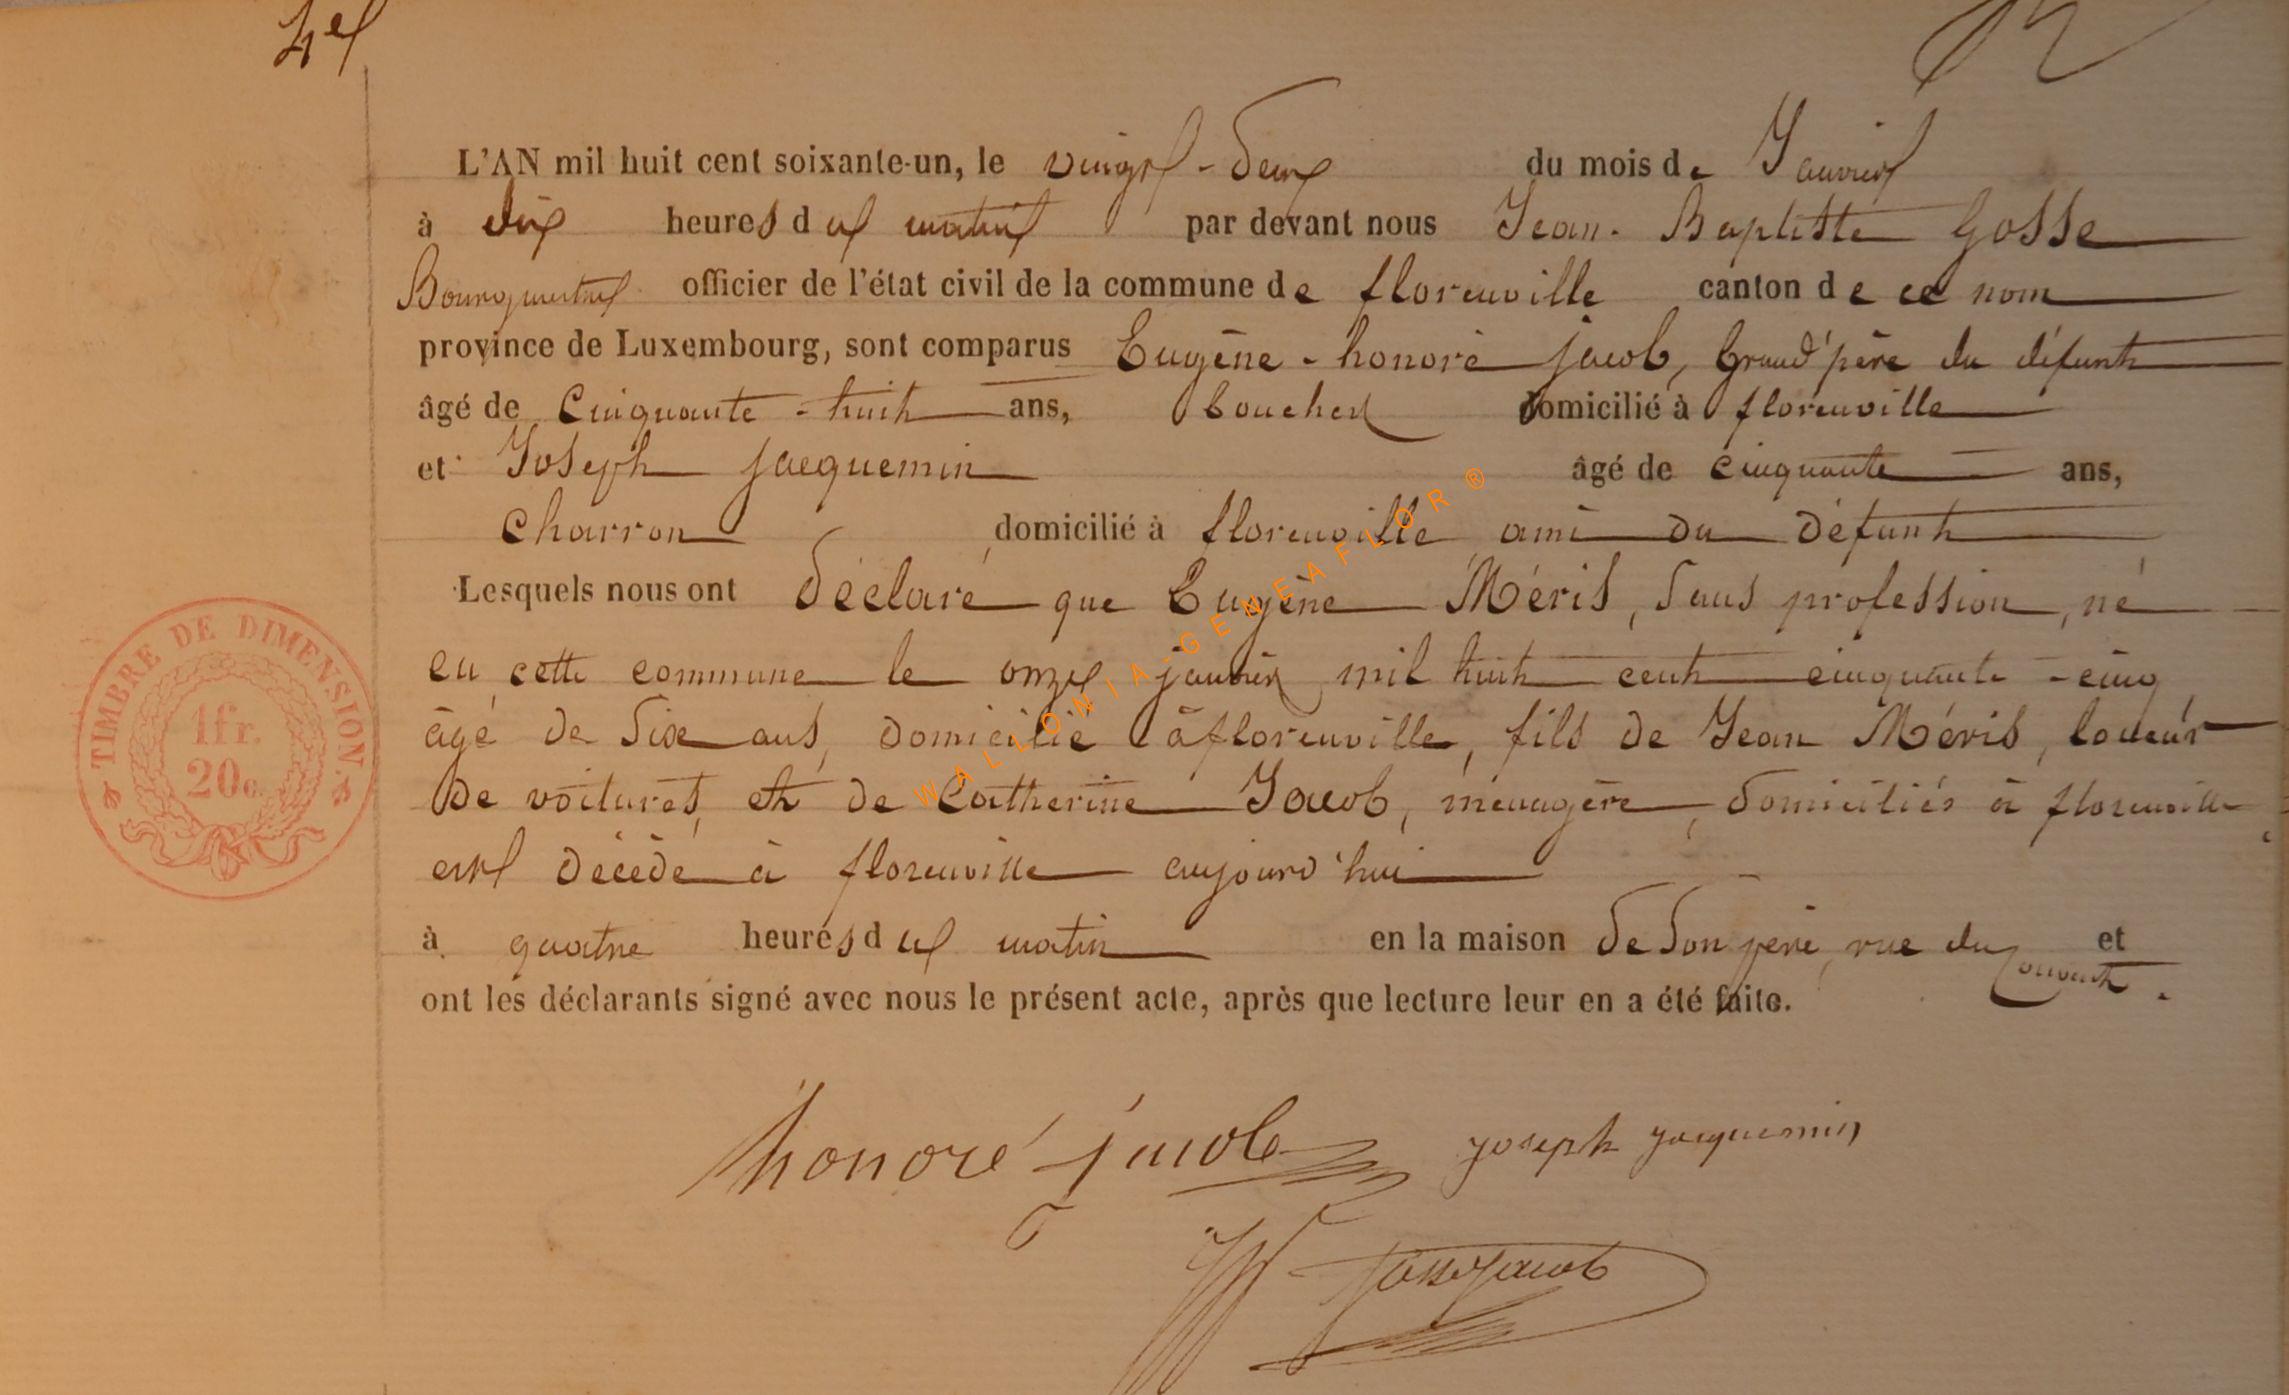 4e
L'AN mil huit cent soixante-un, le vingt-deux du mois de Janvier
à dix heures du matin par devant nous Jean-Baptiste Gosse
Bourgmestre officier de l'état civil de la commune de florenville canton de ce nom
province de Luxembourg, sont comparus Eugène-honoré jacob, Grand'père du défunt
âgé de Cinquante-huit ans, boucher domicilié à florenville
et Joseph jacquemin âgé de cinquante ans,
Charron domicilié à florenville ami du défunt
Lesquels nous ont déclaré que Eugène Méris, sans profession, né
en cette commune le onze janvier mil huit cent cinquante-cinq
âgé de six ans, domicilié à florenville, fils de Jean Méris, loueur
de voitures, et de Catherine Jacob, ménagère, domiciliés à florenville
est décédé à florenville aujourd'hui
à quatre heures du matin en la maison de son père, rue du Couvent. et
ont les déclarants signé avec nous le présent acte, après que lecture leur en a été faite.
TIMBRE DE DIMENSION.
1fr.
20c.
honoré jacob joseph jacquemin
Gosse Jacob
WALLONIA-GENEAFLOR®